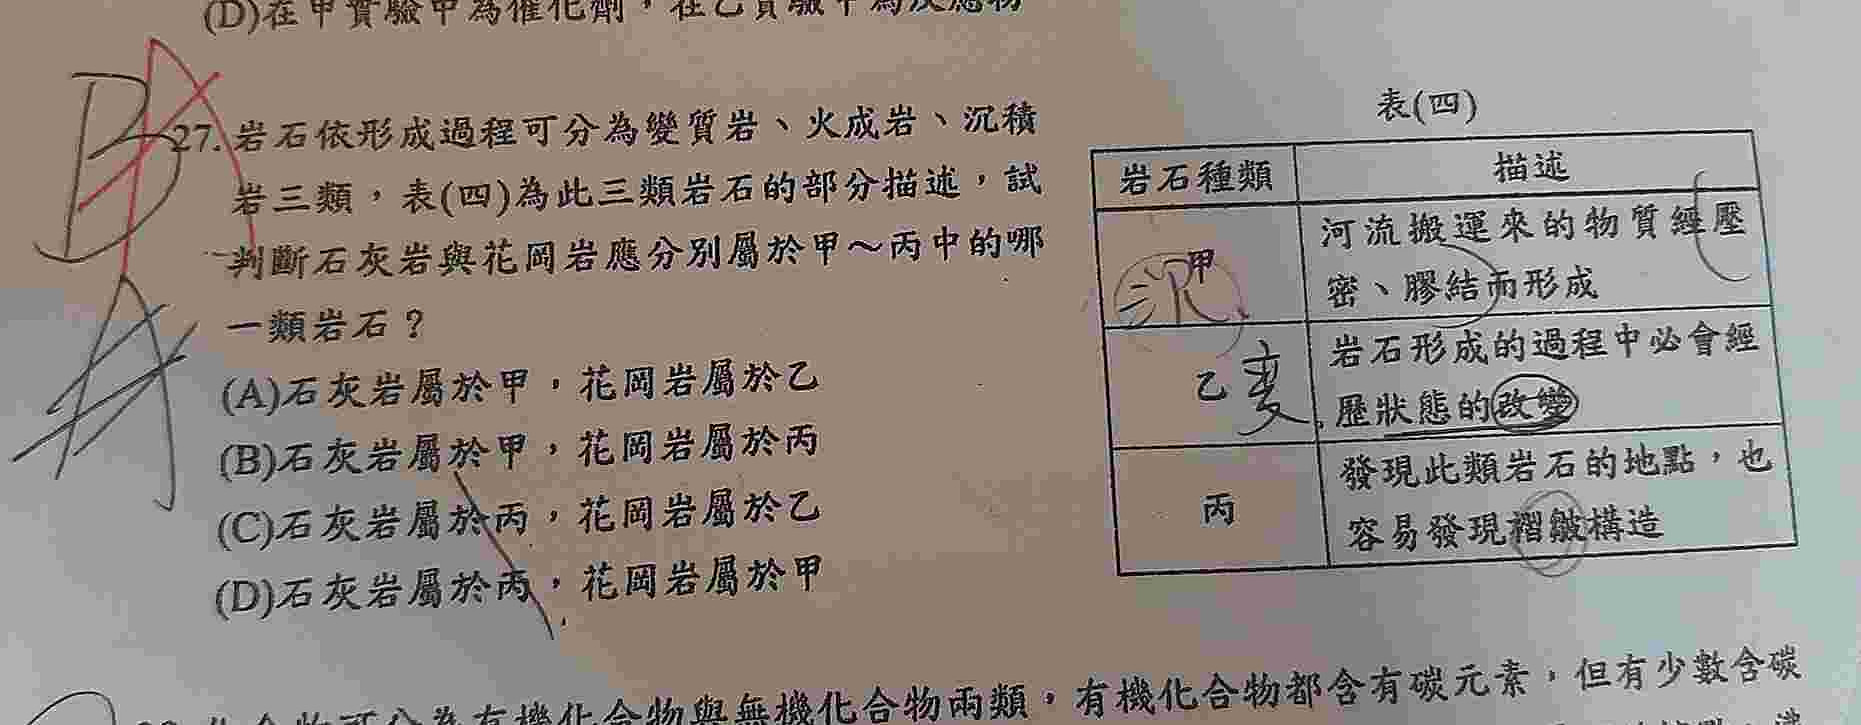 (D)在甲實驗中為催化劑，在乙實驗中為反應物
B
A
27.岩石依形成過程可分為變質岩、火成岩、沉積
岩三類，表(四)為此三類岩石的部分描述，試
判斷石灰岩與花岡岩應分別屬於甲～丙中的哪
一類岩石？
(A)石灰岩屬於甲，花岡岩屬於乙
(B)石灰岩屬於甲，花岡岩屬於丙
(C)石灰岩屬於丙，花岡岩屬於乙
(D)石灰岩屬於丙，花岡岩屬於甲
表(四)
岩石種類 描述
甲 沉 河流搬運來的物質經壓
密、膠結而形成
乙 变 岩石形成的過程中必會經
歷狀態的改變
丙 發現此類岩石的地點，也
容易發現褶皺構造
化合物可分為有機化合物與無機化合物兩類，有機化合物都含有碳元素，但有少數含碳